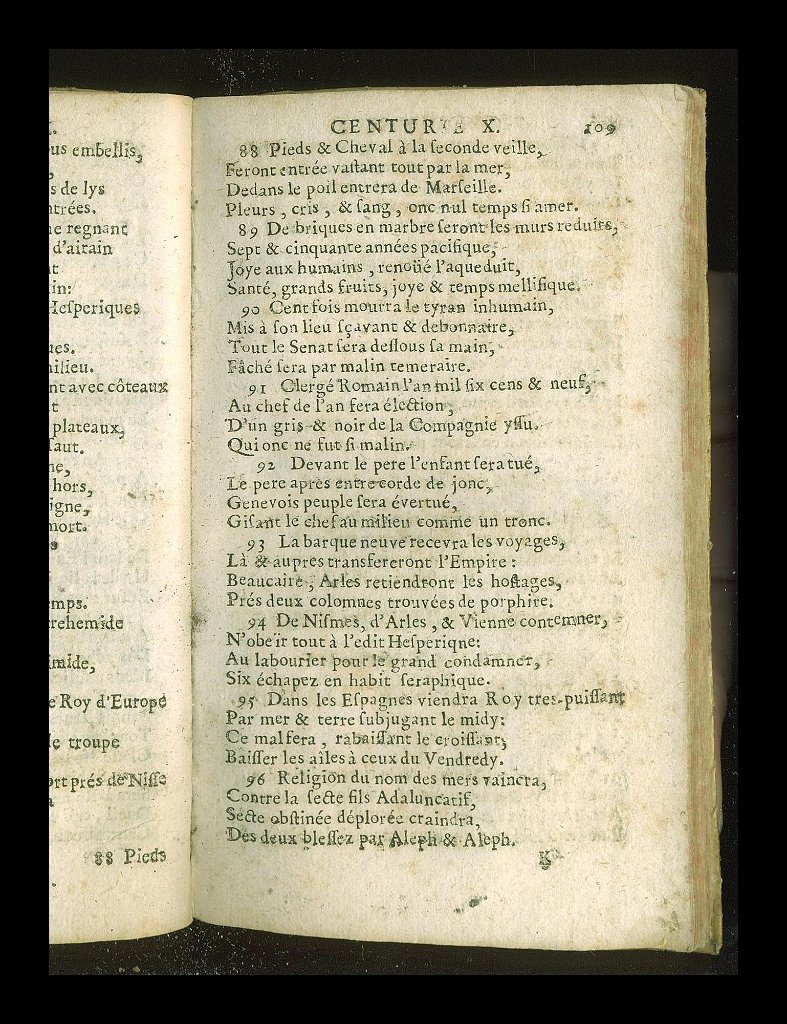 us embellis,
s de lys
ntrées.
e regnant
d'airain
in:
Hesperiques
ues.
milieu.
nt avec côteaux
plateaux,
faut.
ne,
hors,
igne,
mort.
emps.
rehemide
mide,
e Roy d'Europe
de troupe
ort prés de Nisse
88 Pieds
CENTURIE X. 109
88 Pieds & Cheval à la seconde veille,
Feront entrée vastant tout par la mer,
Dedans le poil entrera de Marseille.
Pleurs, cris, & sang, onc nul temps si amer.
89 De briques en marbre seront les murs reduits,
Sept & cinquante années pacifique,
Joye aux humains, renoüé l'aqueduit,
Santé, grands fruits, joye & temps mellifique.
90 Cent fois mourra le tyran inhumain,
Mis à son lieu sçavant & debonnaire,
Tout le Senat sera dessous sa main,
Fâché sera par malin temeraire.
91 Clergé Romain l'an mil six cens & neuf,
Au chef de l'an fera élection,
D'un gris & noir de la Compagnie yssu.
Qui onc ne fut si malin.
92 Devant le pere l'enfant sera tué,
Le pere après entre corde de jonc,
Genevois peuple sera évertué,
Gisant le chef au milieu comme un tronc.
93 La barque neuve recevra les voyages,
Là & aupres transfereront l'Empire:
Beaucaire, Arles retiendront les hostages,
Prés deux colomnes trouvées de porphire.
94 De Nismes, d'Arles, & Vienne contemner,
N'obeïr tout à l'edit Hesperiqne:
Au labourier pour le grand condamner,
Six échapez en habit seraphique.
95 Dans les Espagnes viendra Roy tres-puissant
Par mer & terre subjugant le midy:
Ce mal fera, rabaissant le croissant,
Baisser les aîles à ceux du Vendredy.
96 Religion du nom des mers vaincra,
Contre la secte fils Adaluncatif,
Secte obstinée déplorée craindra,
Des deux blessez par Aleph & Aleph.
K